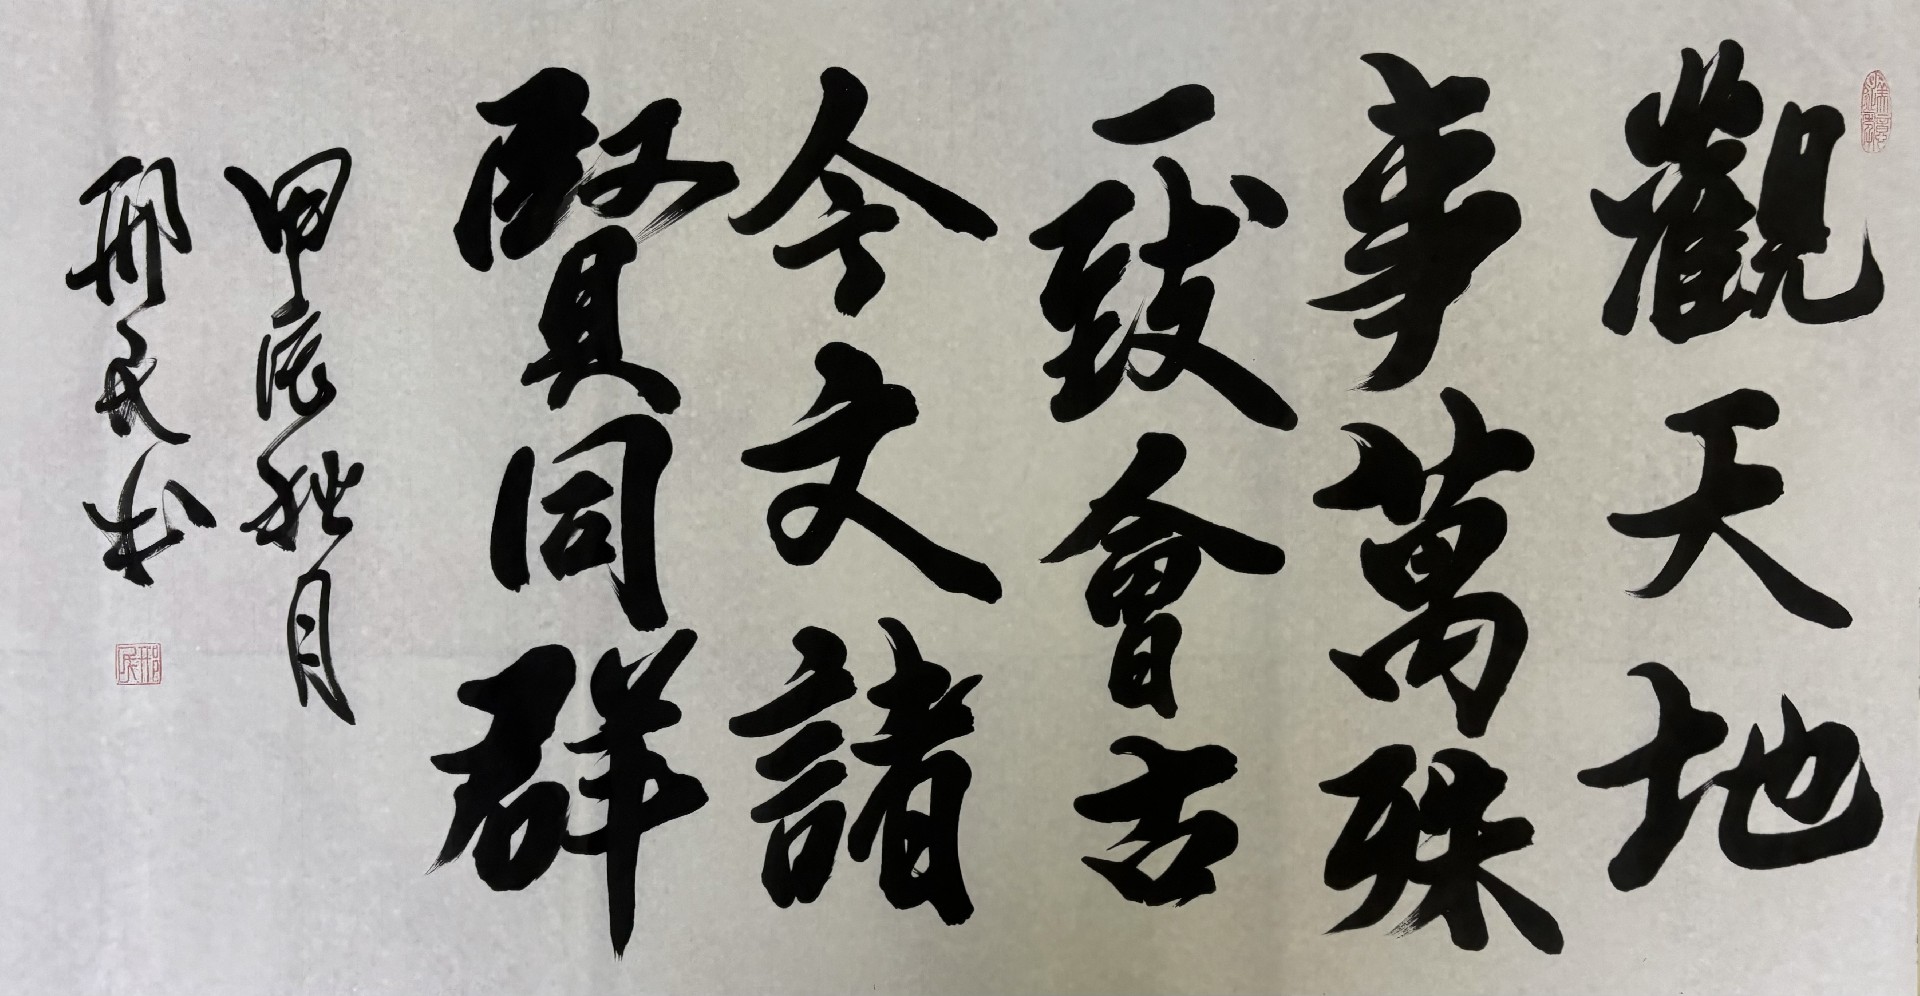 觀天地
事萬殊
一致會古
今文諸
賢同群
甲辰秋月
邢民书
邢民